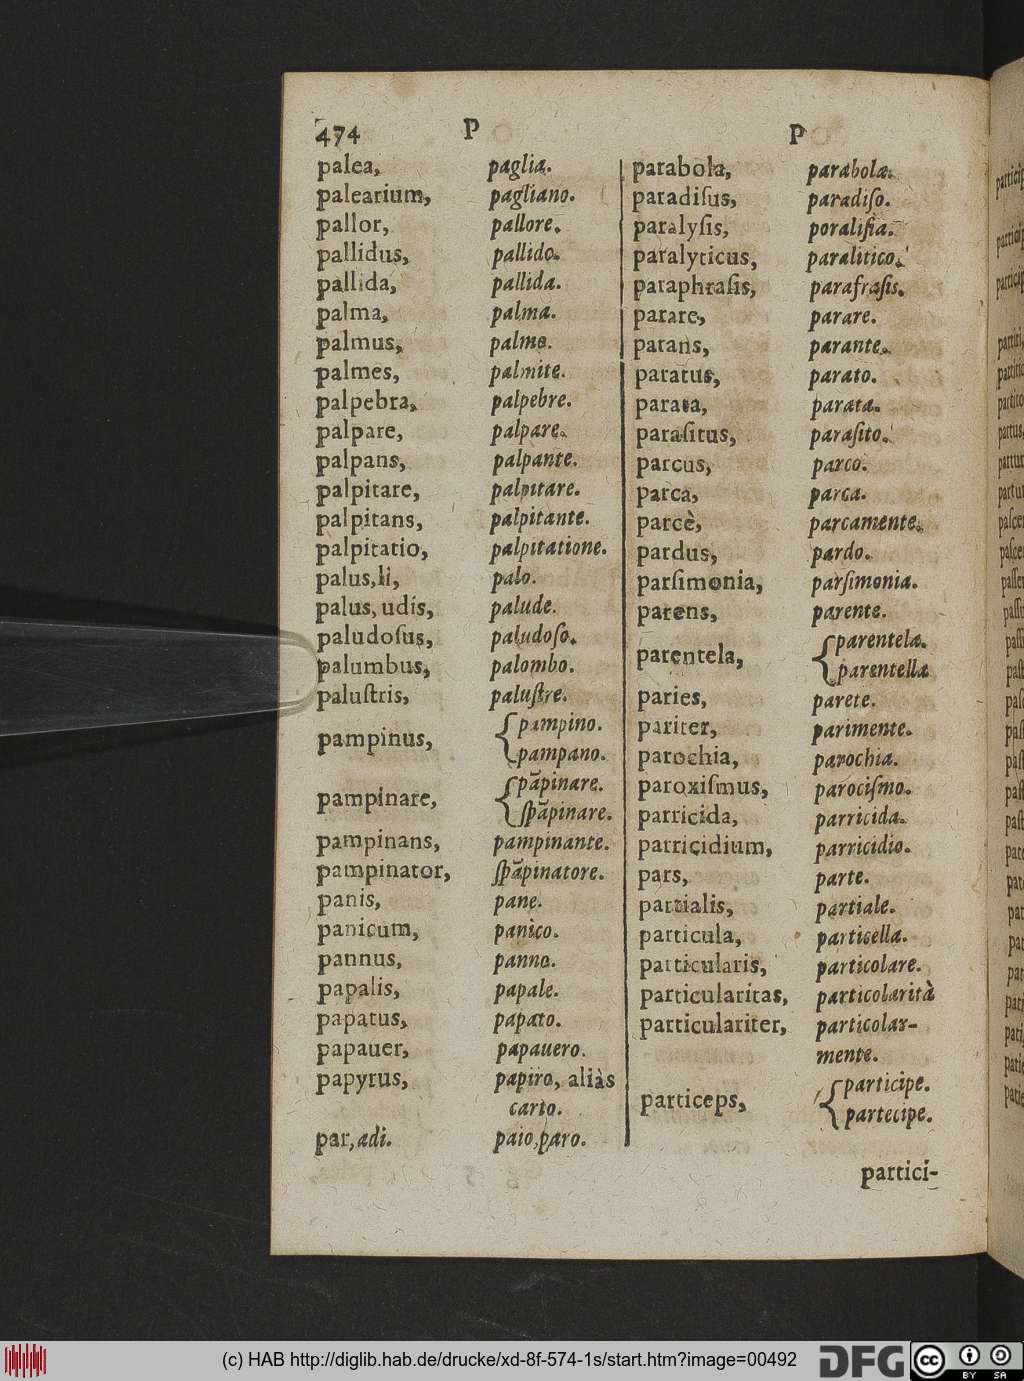 474 P P
palea, paglia.
palearium, pagliano.
pallor, pallore.
pallidus, pallido.
pallida, pallida.
palma, palma.
palmus, palmo.
palmes, palmite.
palpebra, palpebre.
palpare, palpare.
palpans, palpante.
palpitare, palpitare.
palpitans, palpitante.
palpitatio, palpitatione.
palus,li, palo.
palus, udis, palude.
paludoſus, paludoſo.
palumbus, palombo.
paluſtris, paluſtre.
pampinus, { pampino.
pampano.
pampinare, { pāpinare.
ſpāpinare.
pampinans, pampinante.
pampinator, ſpāpinatore.
panis, pane.
panicum, panico.
pannus, panno.
papalis, papale.
papatus, papato.
papauer, papauero.
papyrus, papiro, aliàs
carto.
par, adi. paio, paro.
parabola, parabola.
paradiſus, paradiſo.
paralyſis, poraliſia.
paralyticus, paralitico.
paraphraſis, parafraſis.
parare, parare.
parans, parante.
paratus, parato.
parata, parata.
paraſitus, paraſito.
parcus, parco.
parca, parca.
parcè, parcamente.
pardus, pardo.
parſimonia, parſimonia.
parens, parente.
parentela, { parentela.
parentella
paries, parete.
pariter, parimente.
parochia, parochia.
paroxiſmus, parociſmo.
parricida, parricida.
parricidium, parricidio.
pars, parte.
partialis, partiale.
particula, particella.
particularis, particolare.
particularitas, particolarità
particulariter, particolar-
mente.
particeps, { participe.
partecipe.
partici-
(c) HAB http://diglib.hab.de/drucke/xd-8f-574-1s/start.htm?image=00492
DFG
cc BY SA